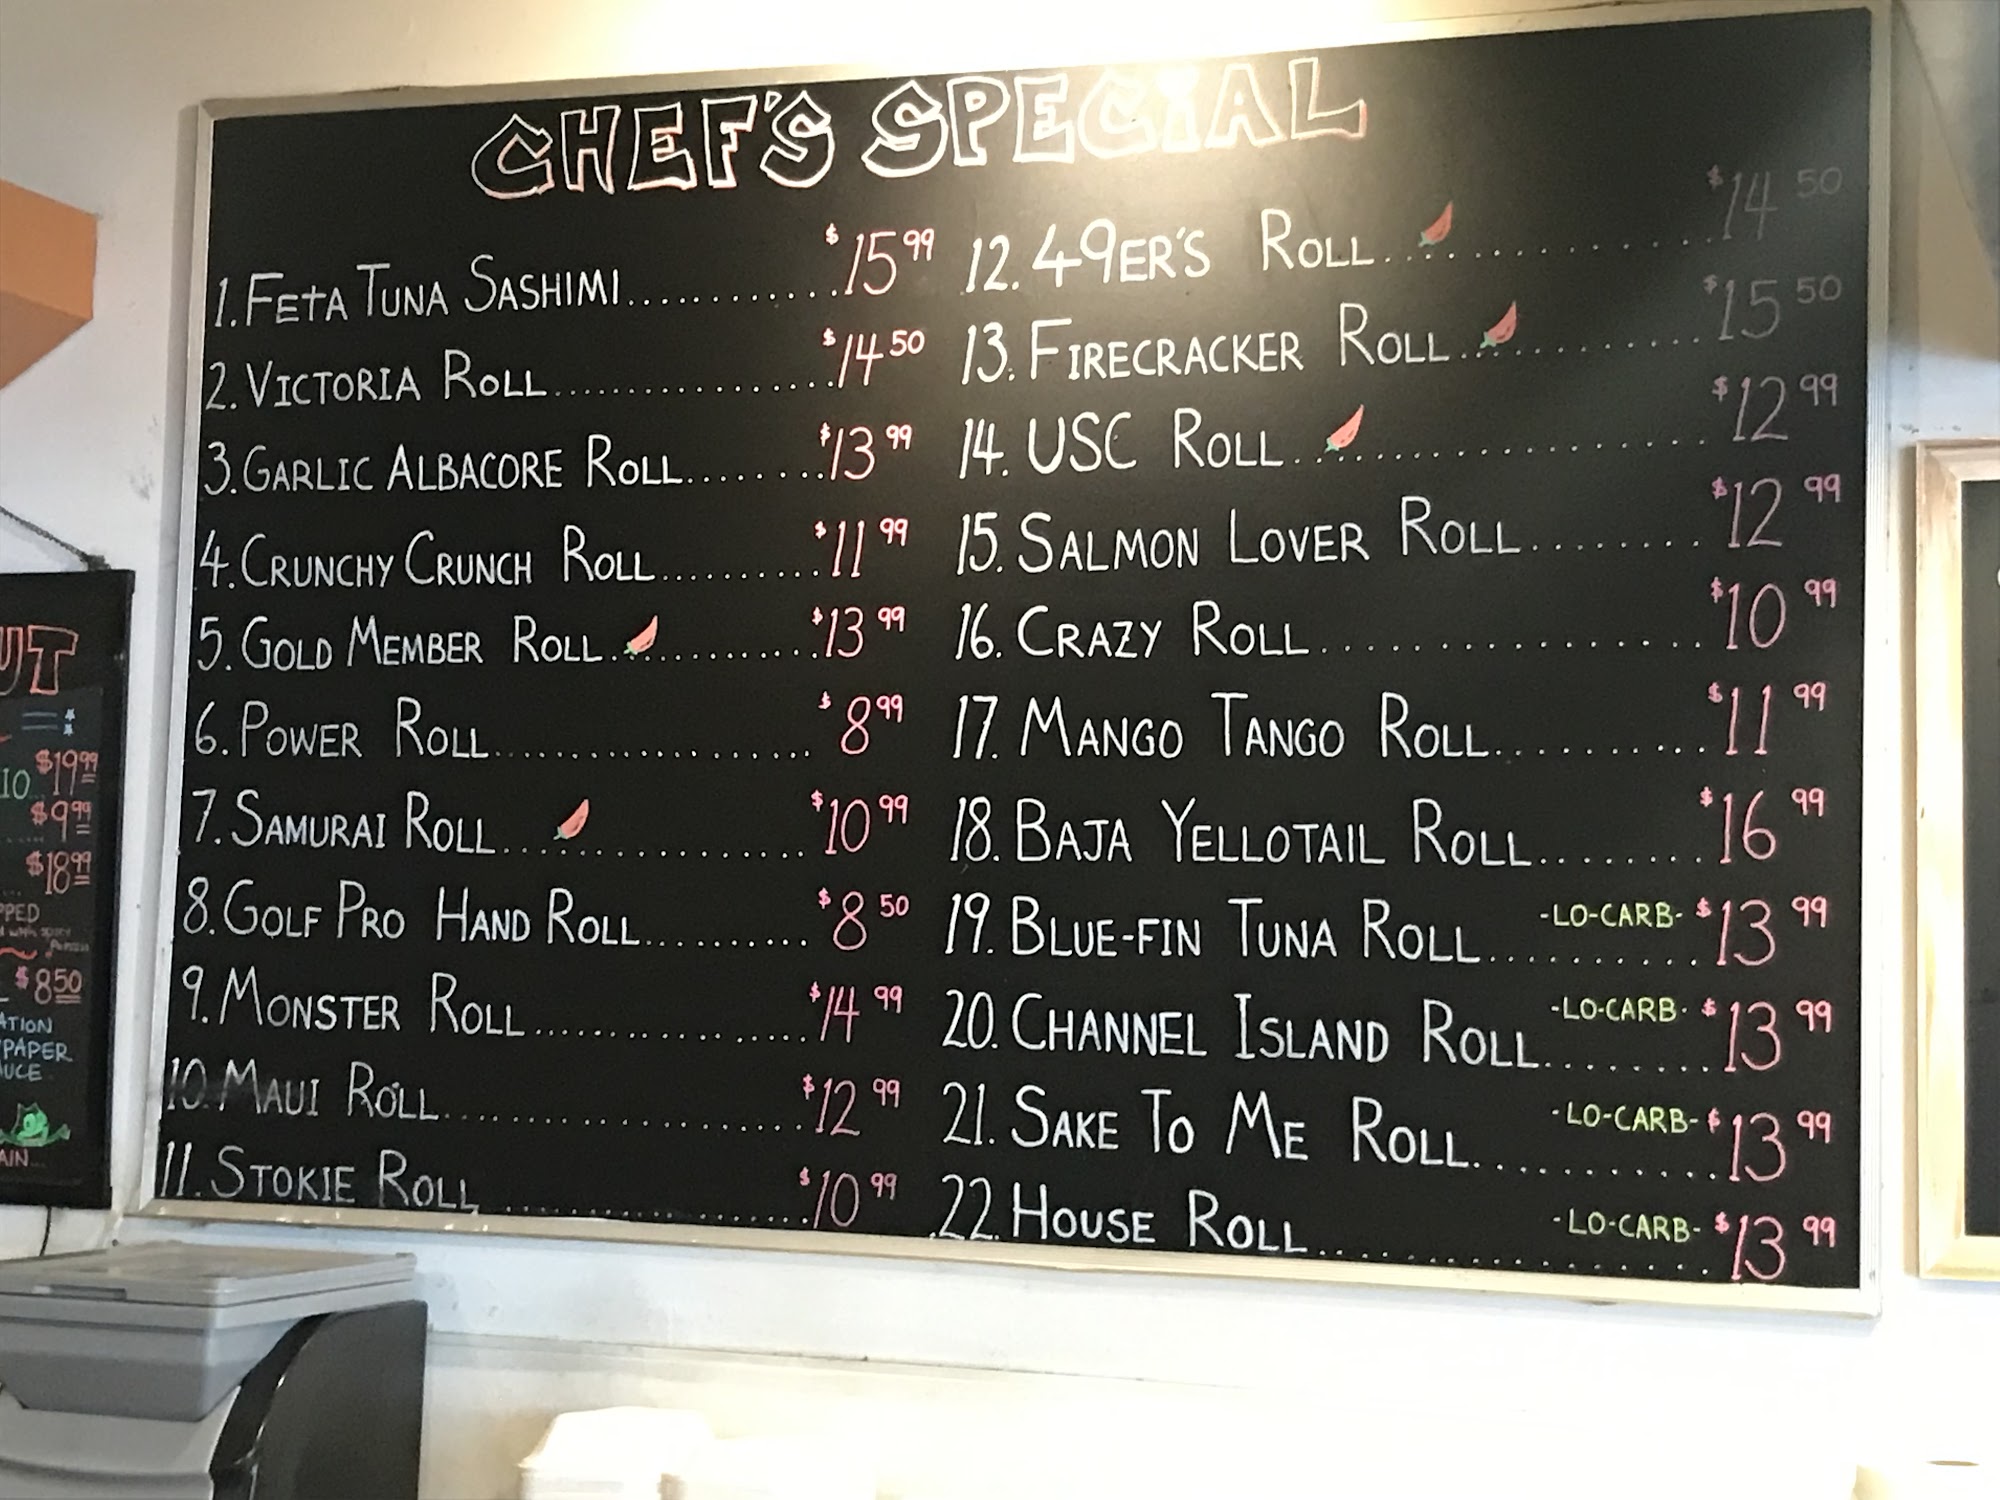 CHEF'S SPECIAL
1. FETA TUNA SASHIMI............$15.99
2. VICTORIA ROLL..................$14.50
3. GARLIC ALBACORE ROLL........$13.99
4. CRUNCHY CRUNCH ROLL..........$11.99
5. GOLD MEMBER ROLL.............$13.99
6. POWER ROLL.....................$8.99
7. SAMURAI ROLL...................$10.99
8. GOLF PRO HAND ROLL..........$8.50
9. MONSTER ROLL..................$14.99
10. MAUI ROLL.......................$12.99
11. STOKIE ROLL....................$10.99
12. 49ER'S ROLL.................$14.50
13. FIRECRACKER ROLL.............$15.50
14. USC ROLL.....................$12.99
15. SALMON LOVER ROLL........$12.99
16. CRAZY ROLL.................$10.99
17. MANGO TANGO ROLL..........$11.99
18. BAJA YELLOTAIL ROLL........$16.99
19. BLUE-FIN TUNA ROLL.......... -LO-CARB- $13.99
20. CHANNEL ISLAND ROLL........ -LO-CARB- $13.99
21. SAKE TO ME ROLL........... -LO-CARB- $13.99
22. HOUSE ROLL................ -LO-CARB- $13.99
UT
IO $19.99
$9.99
$18.99
PPED
$8.50
ATION
PAPER
UCE
AIN...